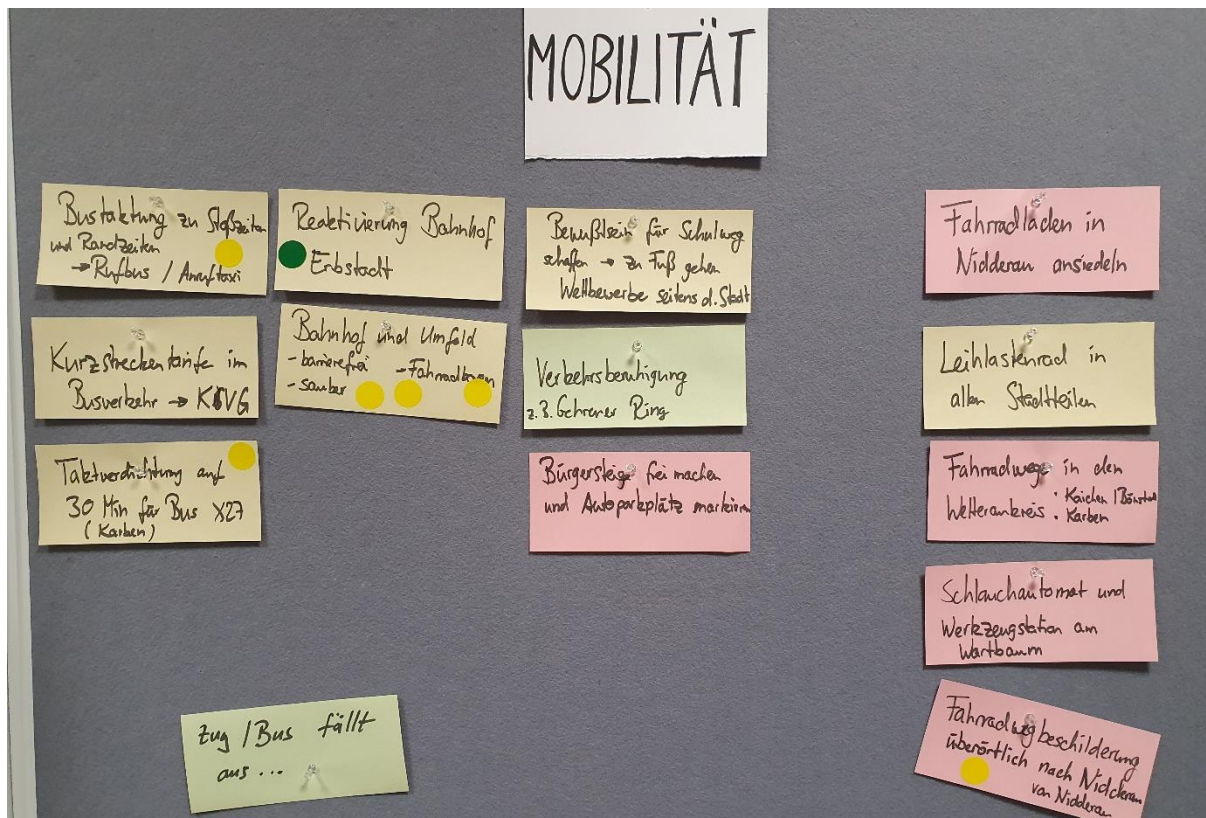 MOBILITÄT
Bustaktung zu Stoßzeiten
und Randzeiten
→ Rufbus / Anruftaxi
Kurzstreckentarife im
Busverkehr → KVG
Taktverdichtung auf
30 Min für Bus X27
(Karben)
Reaktivierung Bahnhof
Erbstadt
Bahnhof und Umfeld
- barrierefrei - Fahrradboxen
- sauber
Zug / Bus fällt
aus ...
Bewußtsein für Schulweg
schaffen → zu Fuß gehen
Wettbewerbe seitens d. Stadt
Verkehrsberuhigung
z.B. Gehrener Ring
Bürgersteige frei machen
und Autoparkplätz markieren
Fahrradläden in
Nidderau ansiedeln
Leihlastenrad in
allen Stadtteilen
Fahrradwege in den
Wetteraukreis : Kaichen /
· Karben
Schlauchautomat und
Werkzeugstation am
Wartbaum
Fahrradwegbeschilderung
überörtlich nach Nidderau
von Nidderau